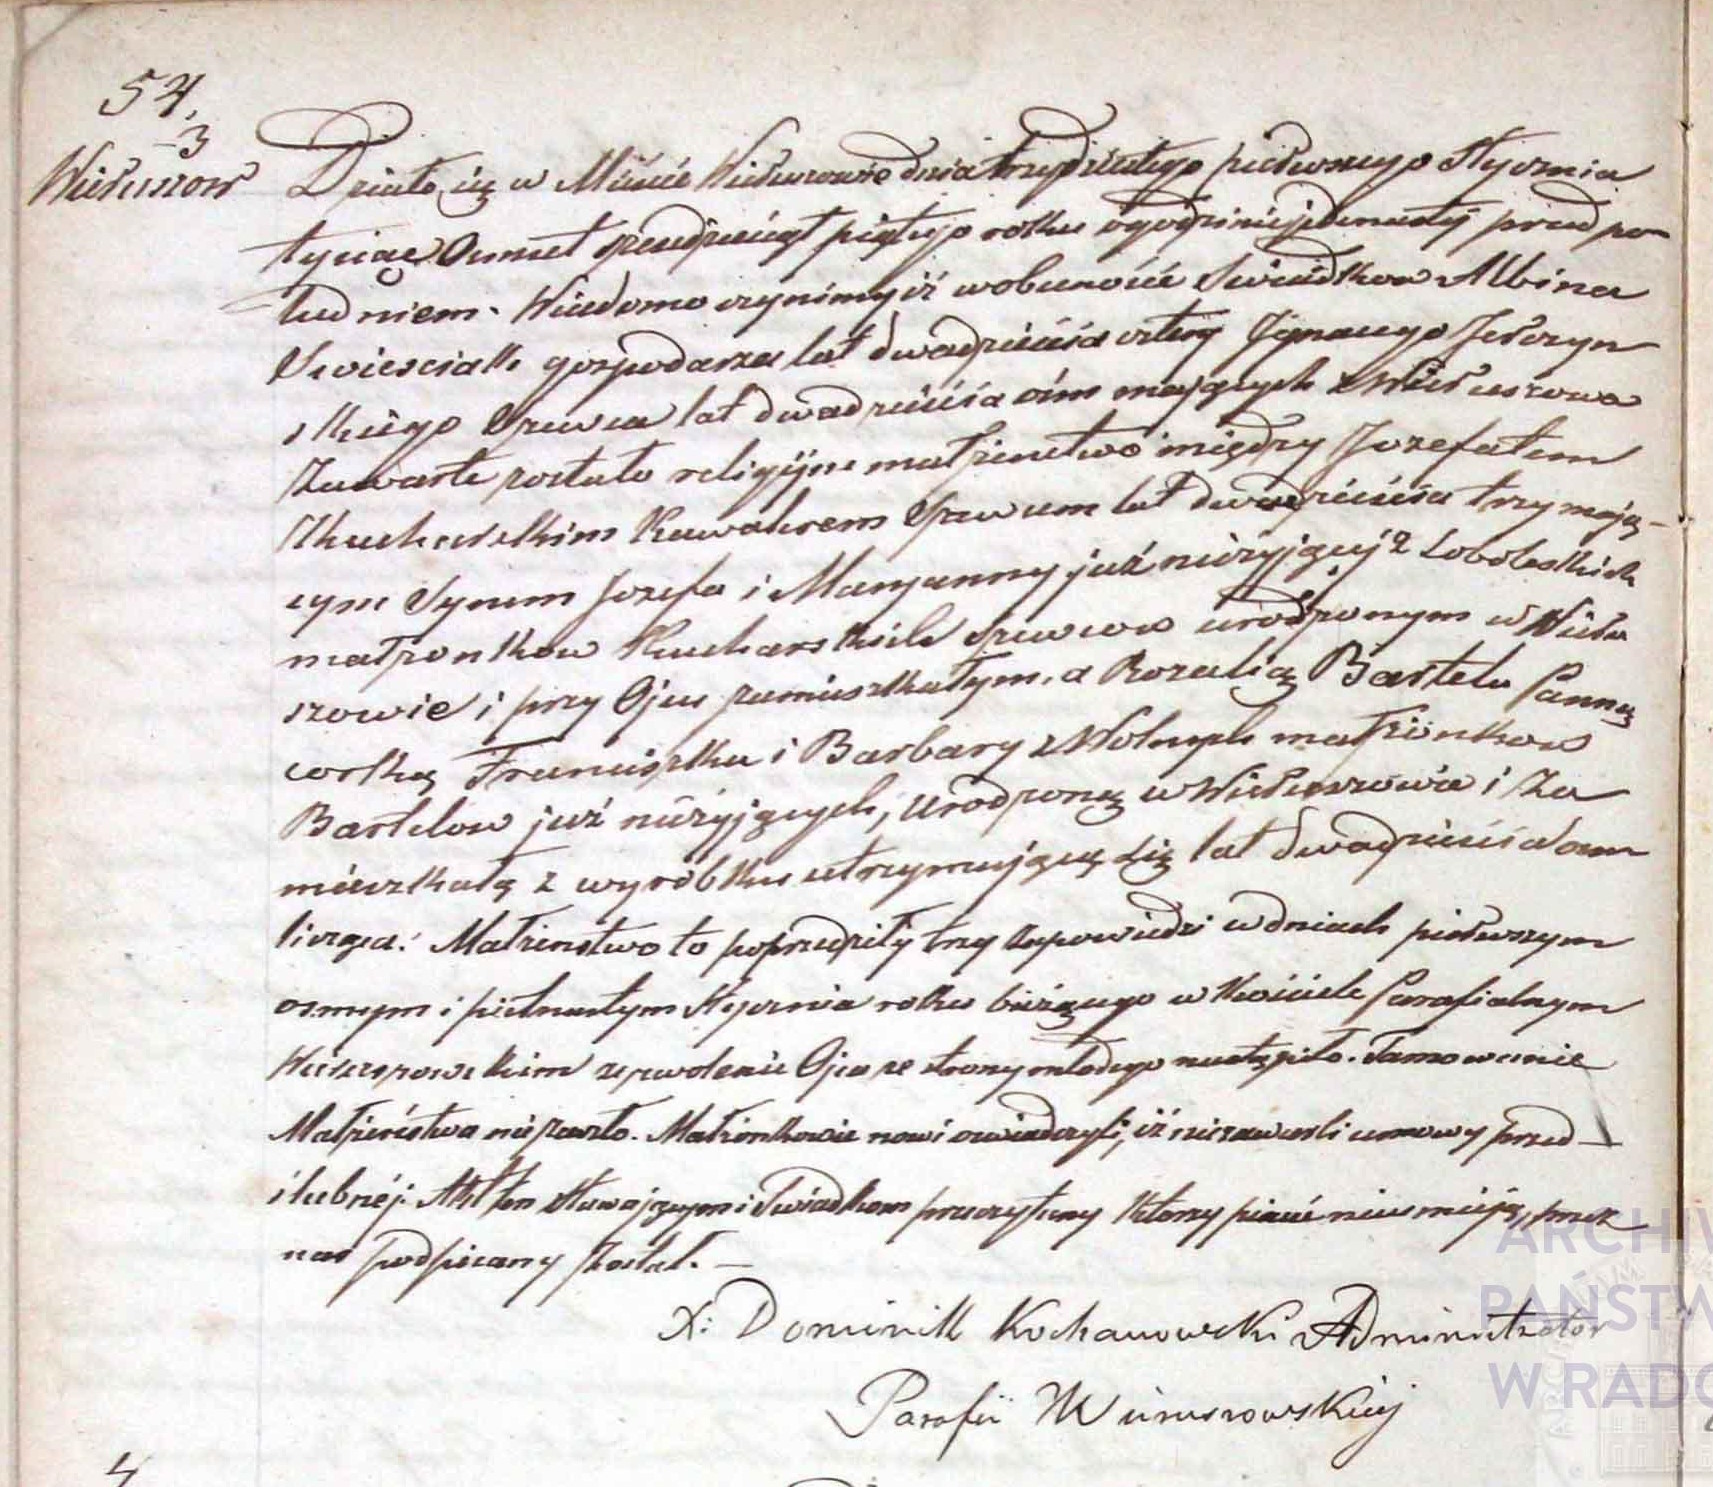 54.
3
Wieruszow
Działo się w Mieście Wieruszowie dnia trzydziestego pierwszego Stycznia
tysiąc Osmset szesdziesiąt piątego roku o godzinie jedenastej przed po-
łudniem. Wiadomo czynimy iż w obecności Swiadkow Albina
Swiesciak gospodarza lat dwadzieścia cztery Ignacego Jerczyn
skiego Szewca lat dwadzieścia ośm mających z Wieruszowa
Zawarte zostało religijne małżenstwo między Jozefatem
Kucharskim Kawalerem Szewcem lat dwadzieścia trzy mają-
cym Synem Jozefa i Maryanny już nieżyjącej z Soboleskich
małżonkow Kucharskich Szewcow urodzonym w Wieru
szowie i przy Ojcu zamieszkałym, a Rozalią Bartela Panną
corką Franciszka i Barbary z Wolnych małżonkow
Bartelow już nieżyjących, urodzoną w Wieruszowie i Za
mieszkałą z wyróbku utrzymującą się lat dwadzieścia dwa
liczgca. Małżenstwo to poprzedziły trzy zapowiedzi w dniach pierwszym
osmym i pietnastym Stycznia roku bieżącego w Kościele Parafialnym
Wieruszowskim zezwolenie Ojca ze strony młodego nastąpiło. Tamowanie
Małżeństwa nie zaszło. Małżonkowie nowi oświadczyli, iż niezawarli umowy przed-
slubnéj. Akt ten stawającym i Swiadkom przeczytany Którzy pisać nie umieją, przez
nas podpisany został. —
X: Dominik Kochanowski Administrator
Parafii Wieruszowskiej
4
ARCHIW
PAŃSTW
W RADO